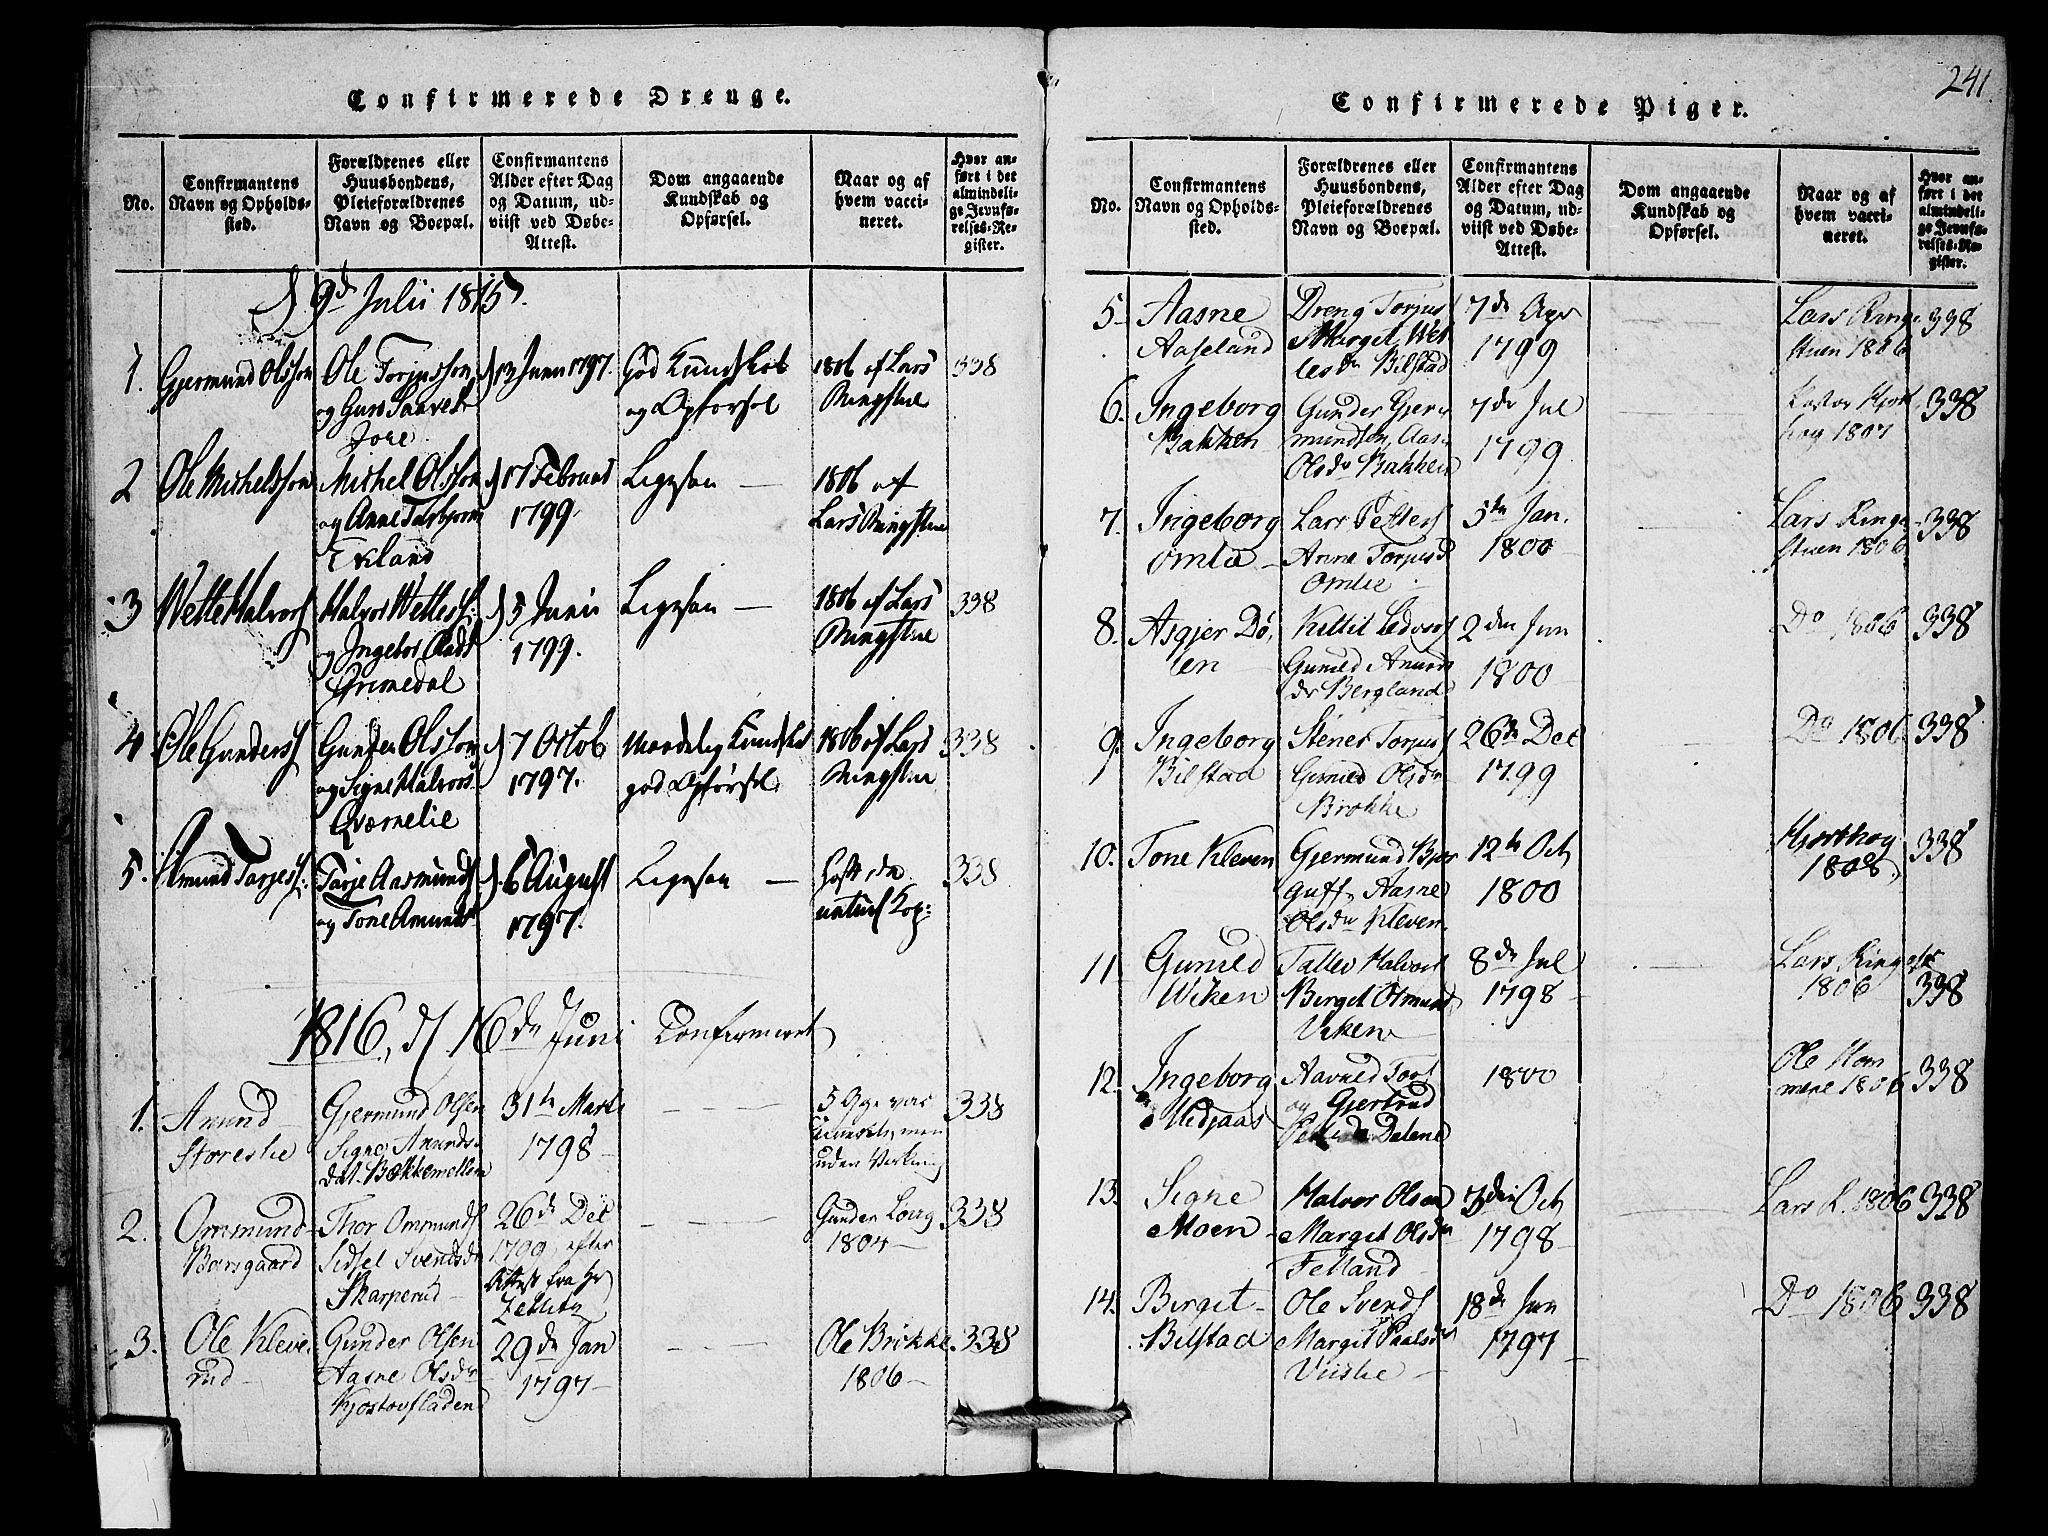 241.
Confirmerede Drenge.
No.
Confirmantens Navn og Opholds-sted.
Forældrenes eller Huusbondens, Pleieforældrenes Navn og Boepæl.
Confirmantens Alder efter Dag og Datum, ud-viist ved Døbe-Attest.
Dom angaaende Kundskab og Opførsel.
Naar og af hvem vacci-neret.
Hvor an-ført i det almindeli-ge Jevnfø-relses-Re-gister.
9d Julii 1815
1. Gjermund Olsson
Ole Torjusson
og Guro Taaves
Jore
13 Juni 1797.
God Kundskab
og Opførsel
1806 af Lars
Ringstue
338
2 Ole Michelsson
Michel Olsson
og Anne Torbjorns
Exland
17 Februar
1799.
Ligesaa —
1806 af
Lars Ringstue
3 Wette Halvors
Halvor Wettess:
og Ingebor Olsd
Grimedal
5 Junii
1799.
Ligesaa —
1806 af Lars
Ringstue
338
4 Ole Gunderss
Gunder Olsson
og Signe Halvors
Qvernelie
7 Octob
1797.
Maadelig Kundskab
god Opførsel
1806 af Lars
Ringstue
338
5. Amund Tarjess:
Tarje Aasmunds
og Tone Amunds
6 August
1797.
Ligesaa —
naturl Kop:
338
1816, d. 16de Juni Confirmeret
1. Anund
Storeslie
Gjermund Olsen
Signe Anunds-
dat. Bekkemellem
31te Marti
1798
5 Gge vac
men
uden Virkning
338
2. Ommund
Borsgaard
Thor Ommunds
Sidsel Svendsdr
Skarperud
26de Dec
1799, efter
Attest fra Hr
Zeilitz
Gunder
1804 —
338
3. Ole Kleve-
rud —
Gunder Olsen
Aasne Olsdr
Kjostovfladen
29de Jan
1797 —
Ole Brikke
1806 —
338
Confirmerede Piger.
No.
Confirmantens Navn og Opholds-sted.
Forældrenes eller Huusbondens, Pleieforældrenes Navn og Boepæl.
Confirmantens Alder efter Dag og Datum, ud-viist ved Døbe-Attest.
Dom angaaende Kundskab og Opførsel.
Naar og af hvem vacci-neret.
Hvor an-ført i det almindeli-ge Jevnfø-relses-Re-gister.
5 Aasne
Aaseland
Dreng Torjuss
Marget Wet
lesdr Bilstad
7de Apr
1799
Lars Ringe
stuen 1806
338
6. Ingeborg
Bakken
Gunder Gjer
mundsen, Aasn
Olsdr Bakken
7de Jul
1799
Hjort
høy 1807
338
7. Ingeborg
Omlie
Lars Petters
Anne Torjusd
Omlie
5te Jan.
1800
Lars Ringe
stuen 1806
338
8. Asgjer Dø
len
Kittil Ledvors
Guneld Anunds
dr Bergland
2den Jun
1800
Do 1806
338
9. Ingeborg
Bilstad
Stener Torjuss
Guneld Olsdr
Brokke
26de Dec
1799
Do 1806
338
10. Tone Kleven
Gjermund Bjør
gufs, Aasne
Olsdr Kleven
12te Oct
1800
Hjorthøy
1808
338
11 Guneld
Wiken
Tallev Halvors
Berget Osmund
Viken
8de Jul
1798
Lars Ringest
1806
338
12. Ingeborg
Midjaas
Aavned Torl
og Gjertrud
Dalene
1800
Ole Hom
mere 1806
338
13. Signe
Moen
Halvor Olsen
Margit Olsdr
Felland
7den Oct
1798
Lars R. 1806
338
14. Birgit
Bilstad
Ole Svends
Margit Paalsdr
Vislie
18de Jun
1797
Do 1806
338